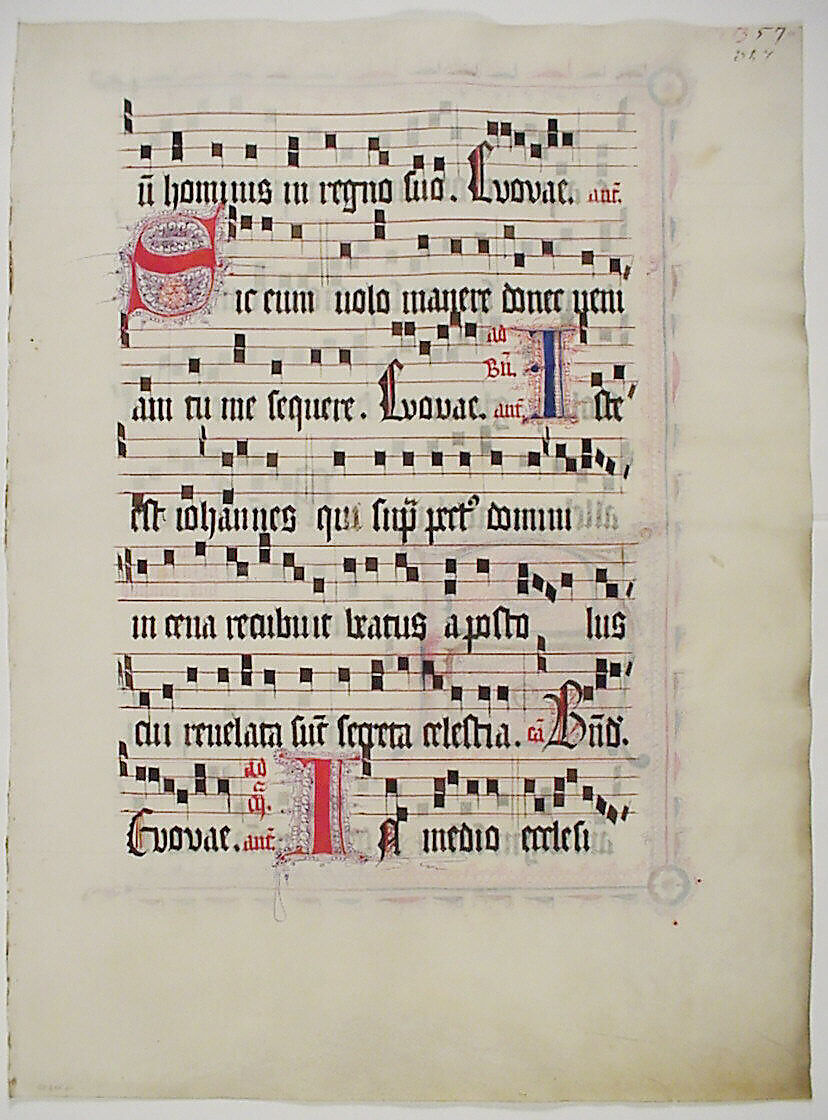 357
ū hominis in regno suo. Euouae. ant̄.
Sic eum uolo manere donec ueni
am tu me sequere. Euouae. ad Bn̄. ant̄. Iste
est iohannes qui sup̄ pect⁹ domini
in cena recubuit beatus aposto lus
cui reuelata sūt secreta celestia. cā Bn̄d̄.
Euouae. ad ant̄. In medio ecclesi